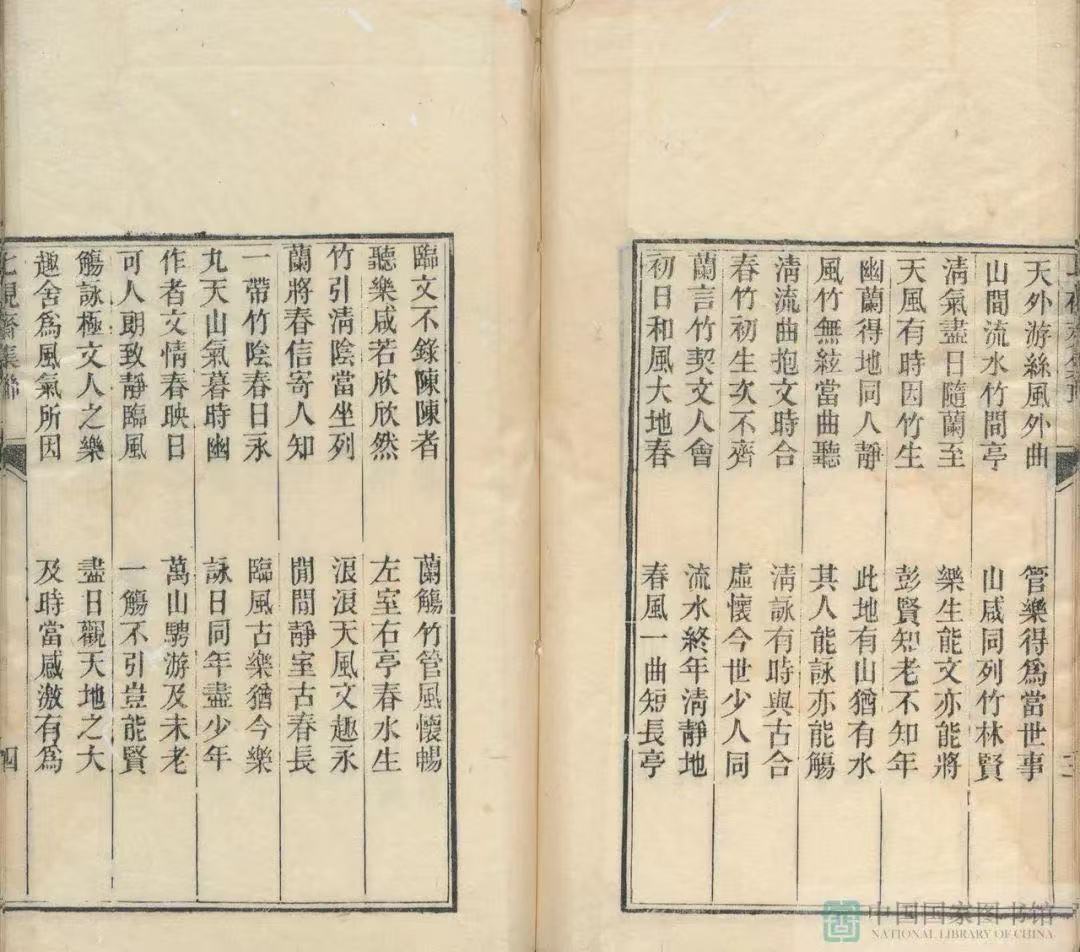 天外游絲風外曲　管樂得爲當世事
山間流水竹間亭　山咸同列竹林賢
淸氣盡日隨蘭至　樂生能文亦能將
天風有時因竹生　彭賢知老不知年
幽蘭得地同人靜　此地有山猶有水
風竹無絃當曲聽　其人能詠亦能觴
淸流曲抱文時合　淸詠有時與古合
春竹初生次不齊　虛懷今世少人同
蘭言竹契文人會　流水終年淸靜地
初日和風大地春　春風一曲短長亭
三
臨文不錄陳陳者　蘭觴竹管風懷暢
聽樂咸若欣欣然　左室右亭春水生
竹引淸陰當坐列　浪浪天風文趣永
蘭將春信寄人知　閒閒靜室古春長
一帶竹陰春日永　臨風古樂猶今樂
丸天山氣暮時幽　詠日同年盡少年
作者文情春映日　萬山騁游及未老
可人朗致靜臨風　一觴不引豈能賢
觴詠極文人之樂　盡日觀天地之大
趣舍爲風氣所因　及時當感激有爲
集聯
四
中国国家图书馆
NATIONAL LIBRARY OF CHINA